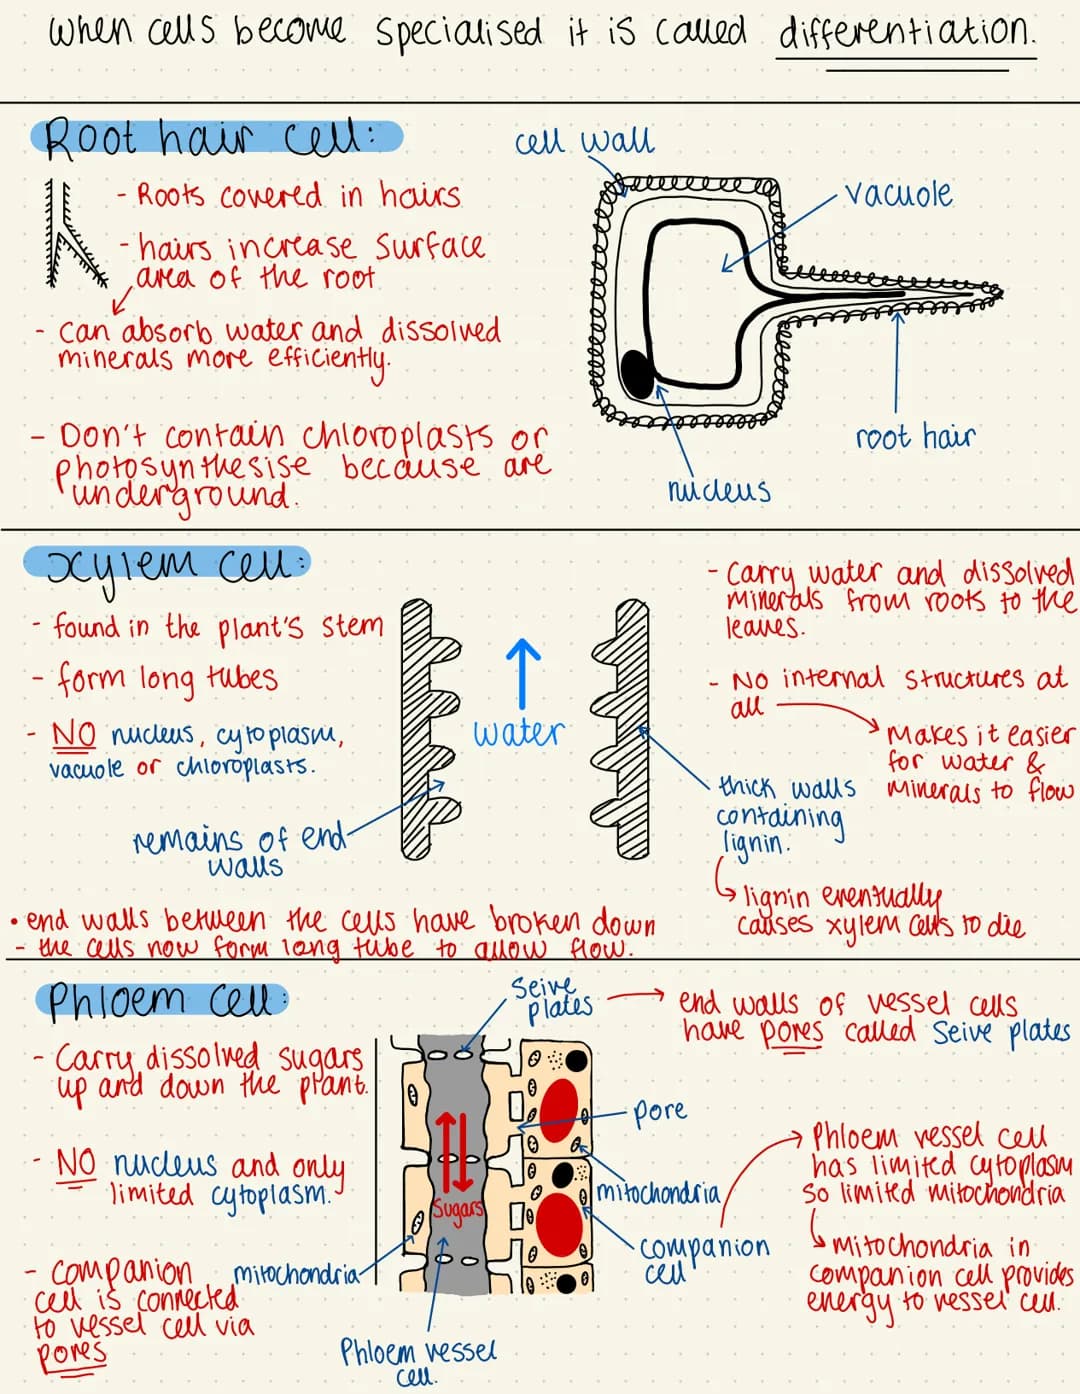 when cells become specialised it is called differentiation.
Root hair cell:
- Roots covered in hairs
- hairs increase surface
area of the root
- can absorb water and dissolved
minerals more efficiently.
- Don't contain chloroplasts or
photosynthesise because are
underground.
cell wall
vacuole
root hair
nucleus
xylem cell:
- found in the plant's stem
- form long tubes
- NO nucleus, cytoplasm,
vacuole or chloroplasts.
remains of end
walls
water
- Carry water and dissolved
minerals from roots to the
leaves.
- No internal structures at
all
Makes it easier
for water &
minerals to flow
thick walls
containing
lignin.
lignin eventually
causes xylem cells to die
• end walls between the cells have broken down
- the cells now form long tube to allow flow.
Phloem cell:
- Carry dissolved sugars
up and down the plant.
- NO nucleus and only
limited cytoplasm.
- companion
cell is connected
to vessel cell via
pores
Seive
plates
end walls of vessel cells
have pores called Seive plates
pore
mitochondria
companion
cell
Sugars
mitochondria
Phloem vessel
cell.
Phloem vessel cell
has limited cytoplasm
so limited mitochondria
Mitochondria in
companion cell provides
energy to vessel cell.